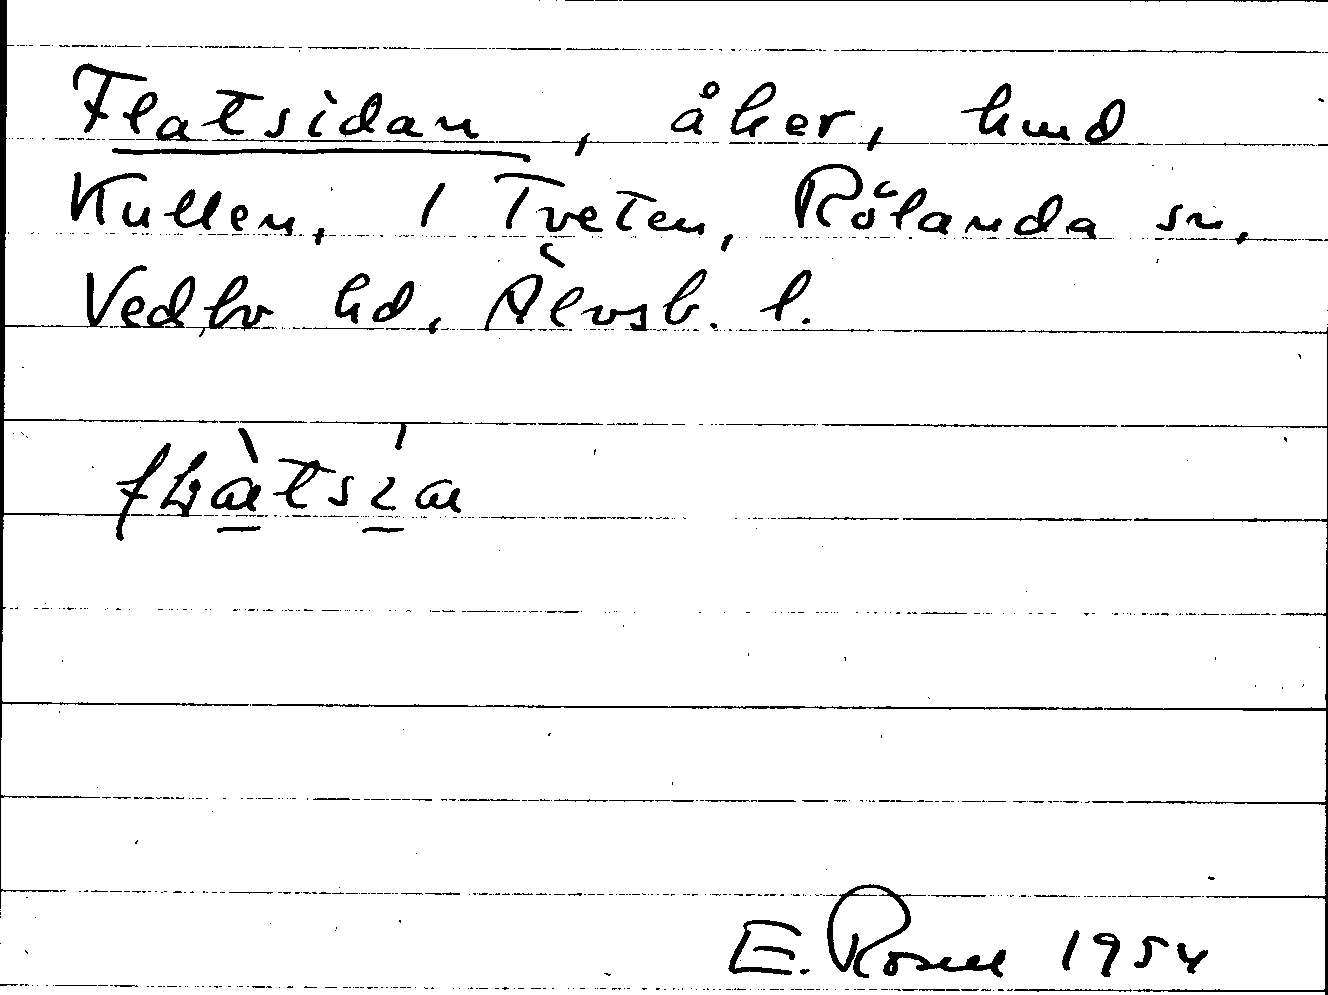 Flatsidan, åker, hmd
Kullen, 1 Tveten, Rölanda sn,
Vedbo hd, Älvsb. l.
E. Rosell 1954